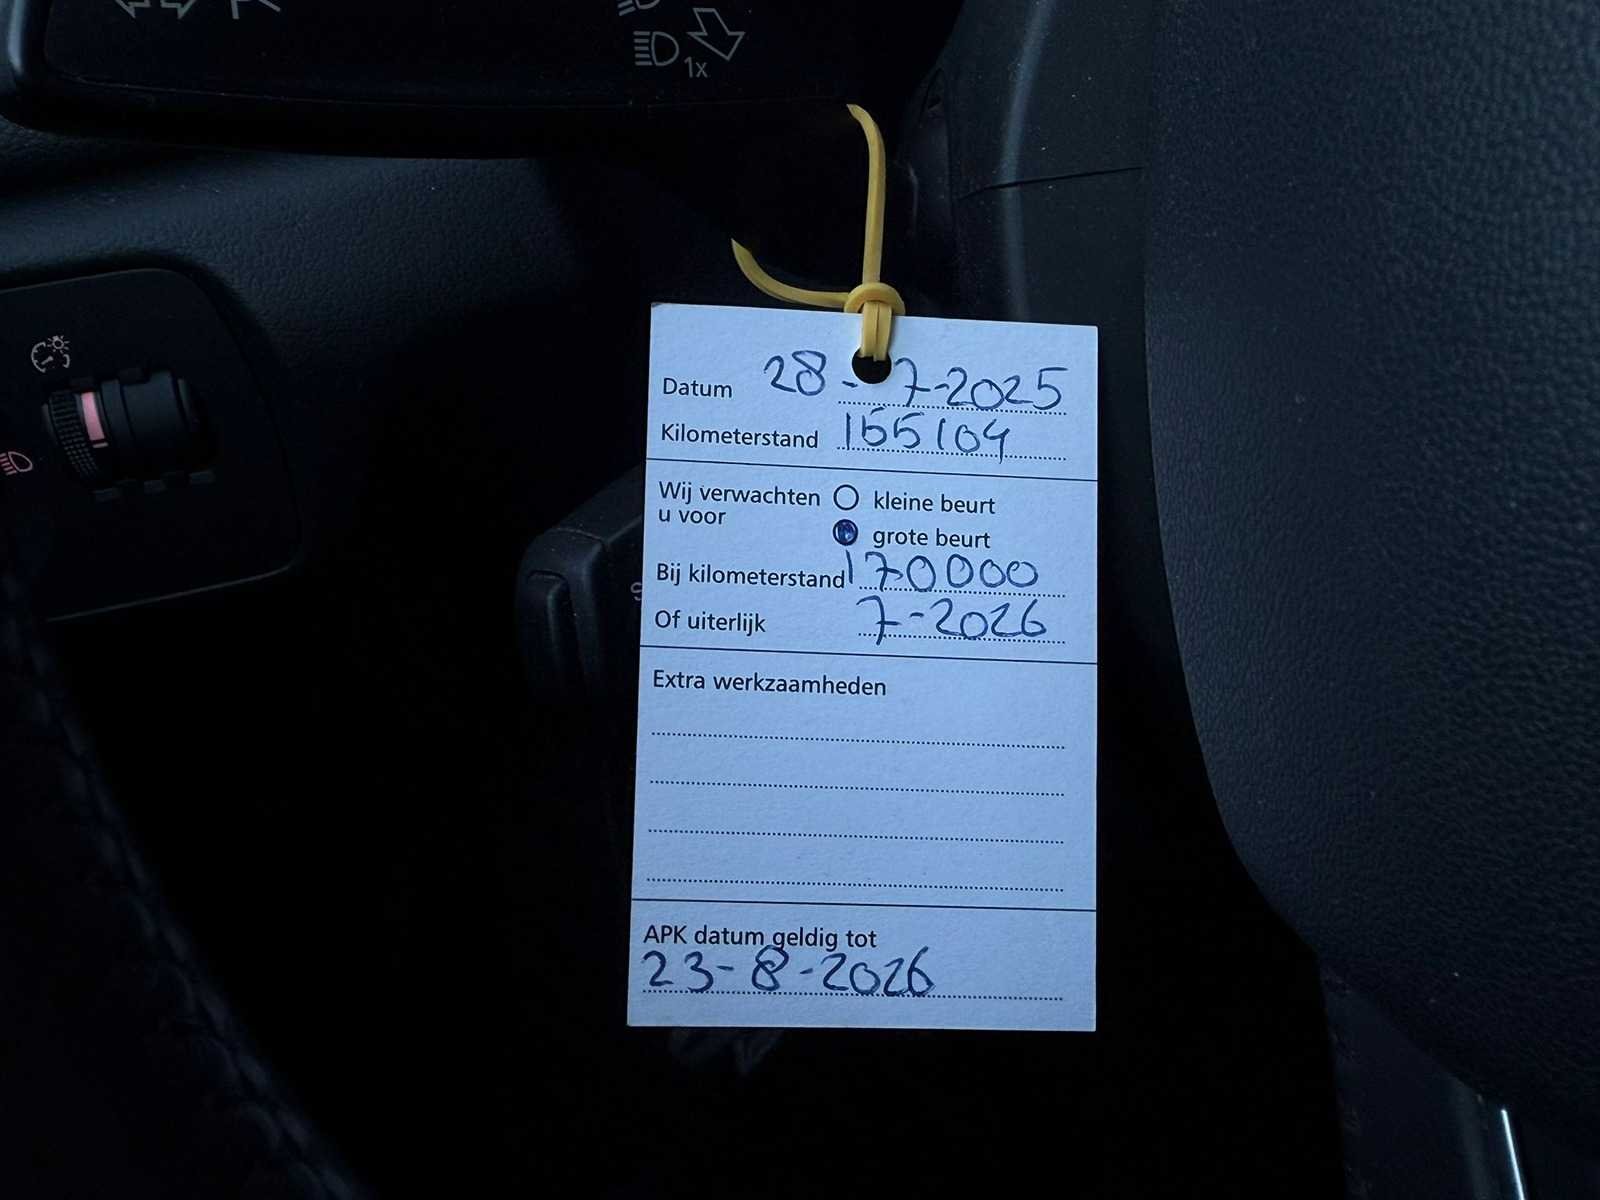 1x
Datum 28-7-2025
Kilometerstand 155104
Wij verwachten u voor
kleine beurt
grote beurt
Bij kilometerstand 170000
Of uiterlijk 7-2026
Extra werkzaamheden
APK datum geldig tot
23-8-2026